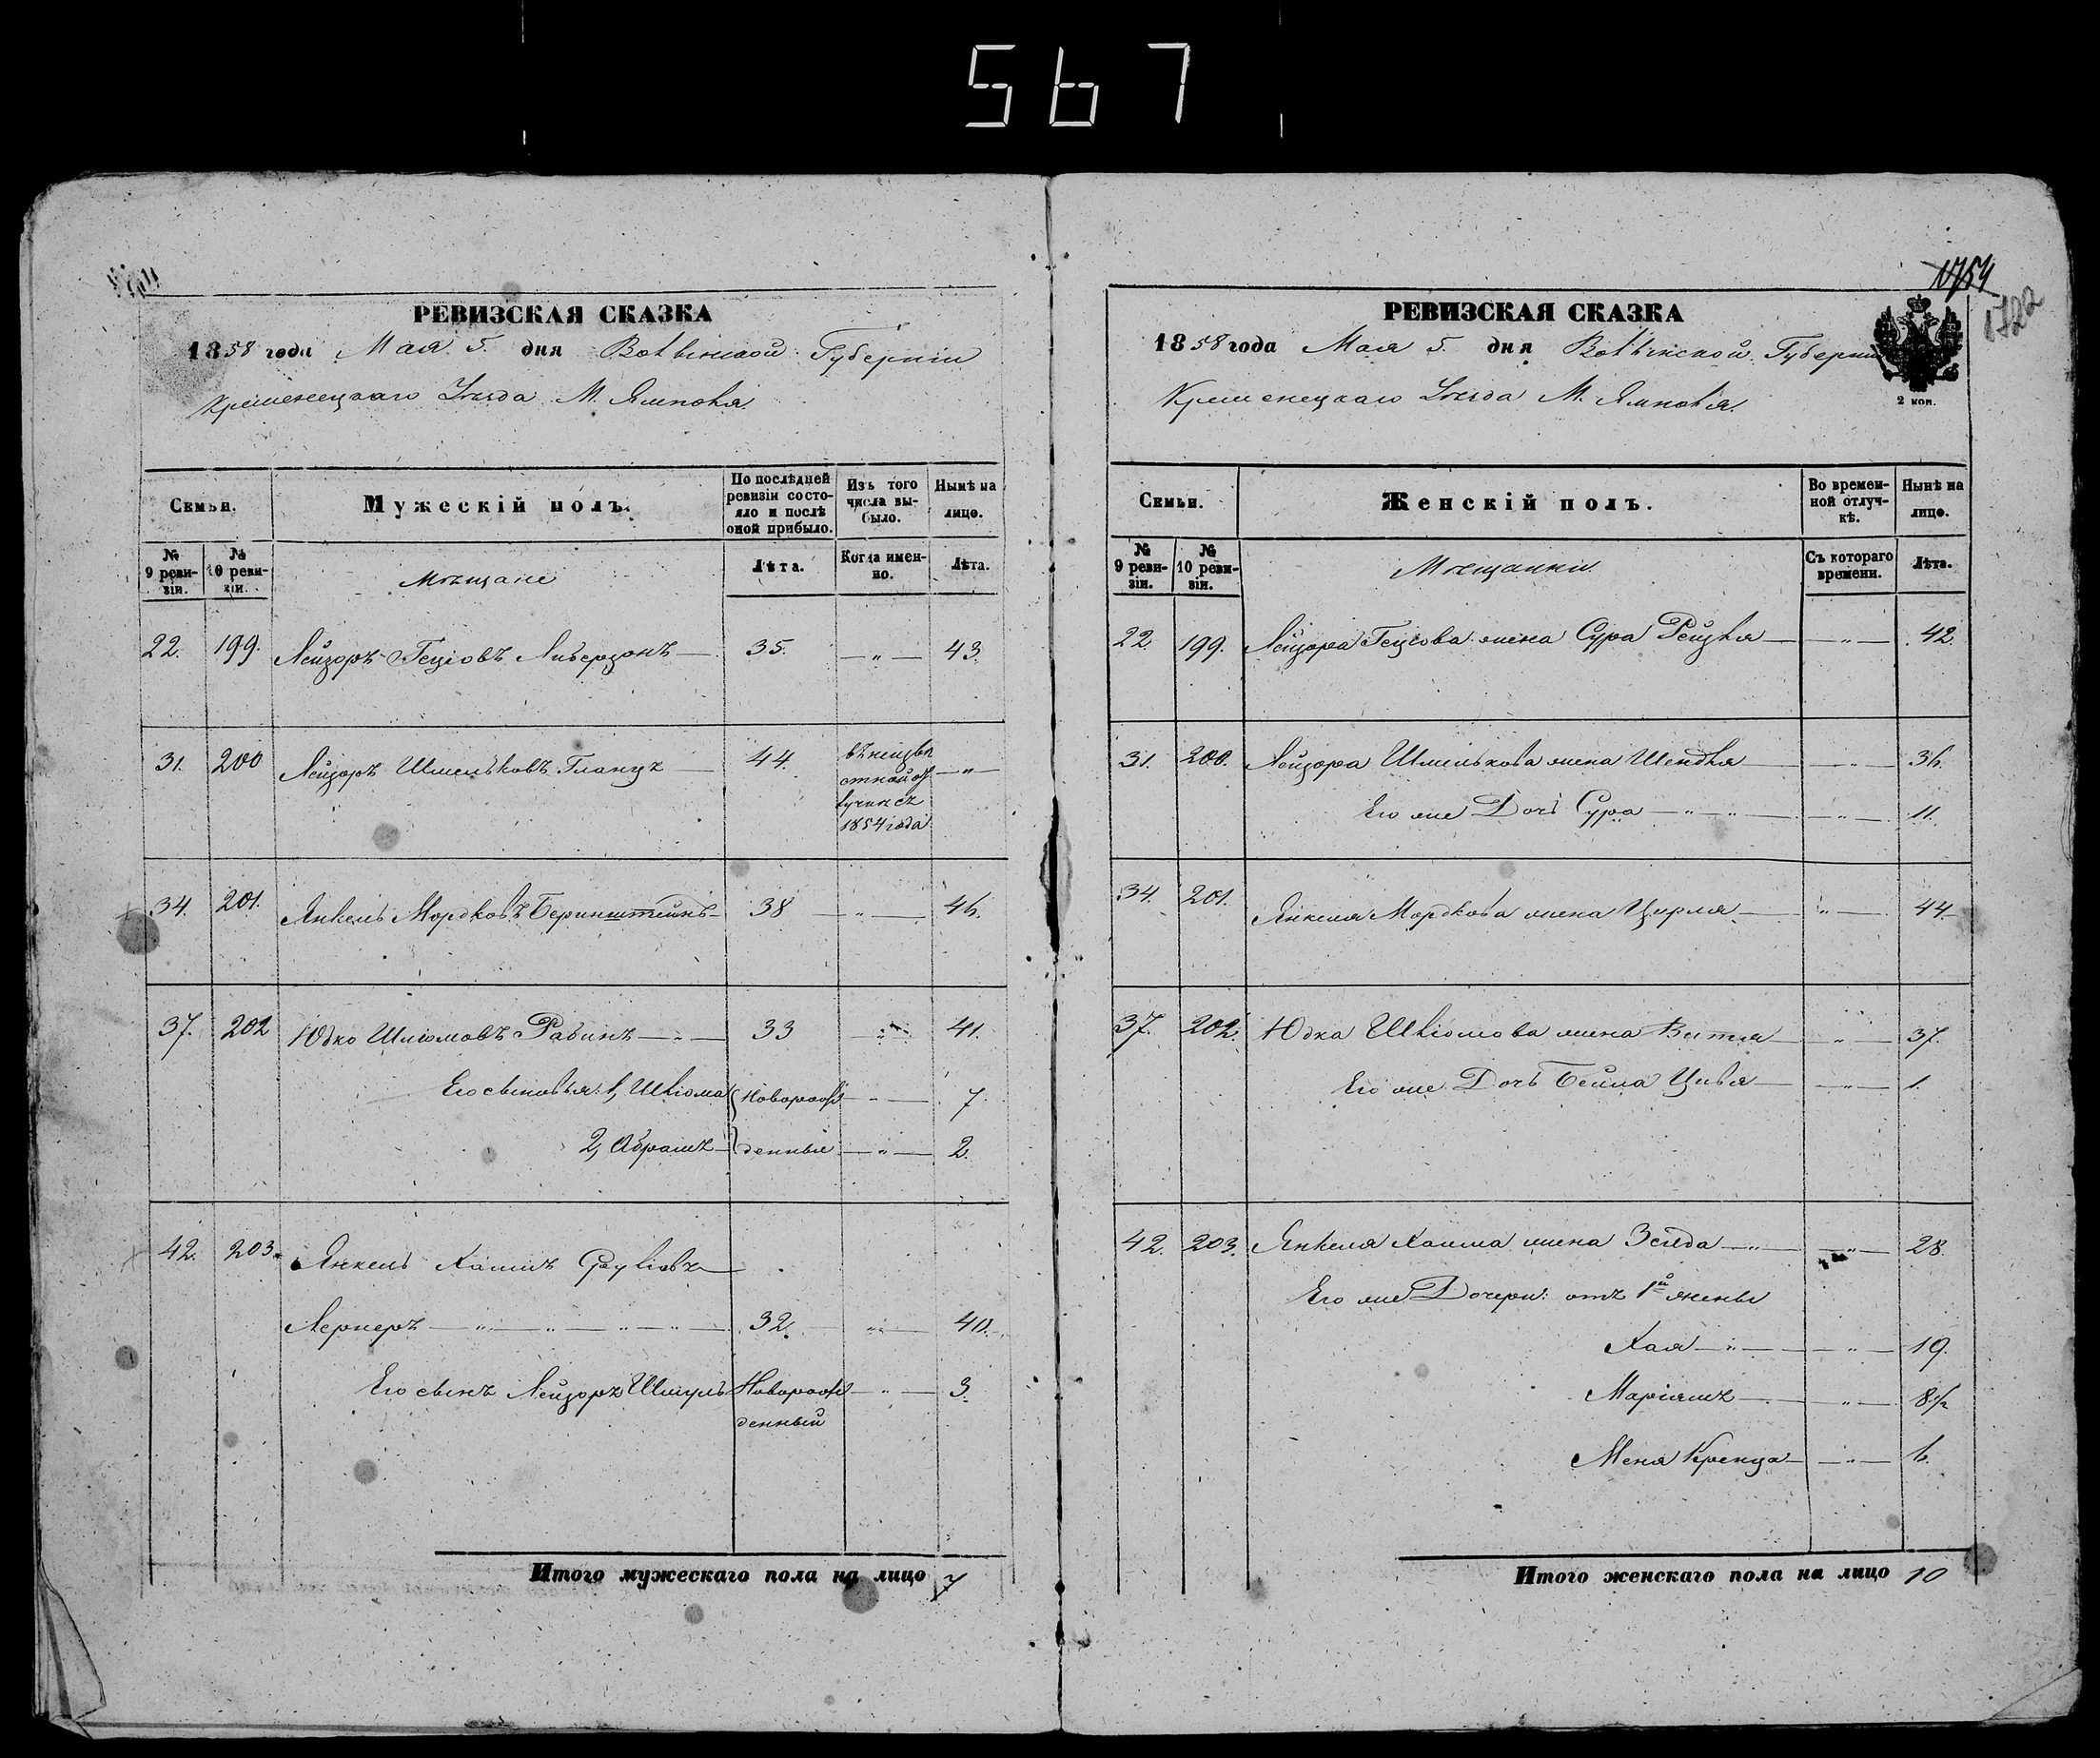 567
РЕВИЗСКАЯ СКАЗКА
1858 года Мая 5. дня Волынской Губерніи
Кременецкаго Уѣзда М. Ямполя
Семьи.
Мужескій полъ.
По послѣдней ревизіи состояло и послѣ оной прибыло.
Изъ того числа выбыло.
Нынѣ на лицо.
№ 9 ревизіи.
№ 10 ревизіи.
Мѣщане
Лѣта.
Когда именно.
Лѣта.
22. 199. Лейзоръ Гецiовъ Либерзонъ — 35. — „ — 43.
31. 200 Лейзоръ Шмельковъ Гланцъ — 44. въ неизвѣ — „ —
стной от
лучкѣ съ
1854 года
34. 201. Янкель Мордковъ Беринштейнъ — 38 „ — 46.
37. 202 Юдко Шліомовъ Рабинъ — „ — 33 — „ — 41.
Его сыновья: 1, Шліома Новорож — „ — 7.
2, Абрамъ — денные — „ — 2.
42. 203. Янкель Хаимъ Сруліовъ
Лернеръ — „ — „ — „ — „ — 32. „ — 40.
Его сынъ Лейзоръ Шмуль Новорож — „ — 3.
денный
Итого мужескаго пола на лицо 7
1754
1722
РЕВИЗСКАЯ СКАЗКА
1858 года Мая 5. дня Волынской Губерніи
2 коп.
Кременецкаго Уѣзда М. Ямполя.
Семьи.
Женскій полъ.
Во временной отлучкѣ.
Нынѣ на лицо.
№ 9 ревизіи.
№ 10 ревизіи.
Мѣщанки
Съ котораго времени.
Лѣта.
22. 199. Лейзора Гецiова жена Сура Рейзля — „ — 42.
31. 200. Лейзора Шмелькова жена Шендля — „ — 36.
Его же Дочь Сура — „ — „ — „ — 11.
34. 201. Янкеля Мордкова жена Цирля — „ — 44.
37. 202. Юдка Шліомова жена Витя — „ — 37.
Его же Дочь Бейла Цивя — „ — 1.
42. 203. Янкеля Хаима жена Зельда — „ — „ — 28.
Его же Дочери: отъ 1й жены
Хая — „ — „ — 19.
Маріямъ — „ — 8 1/2
Меня Кренца — „ — 6.
Итого женскаго пола на лицо 10